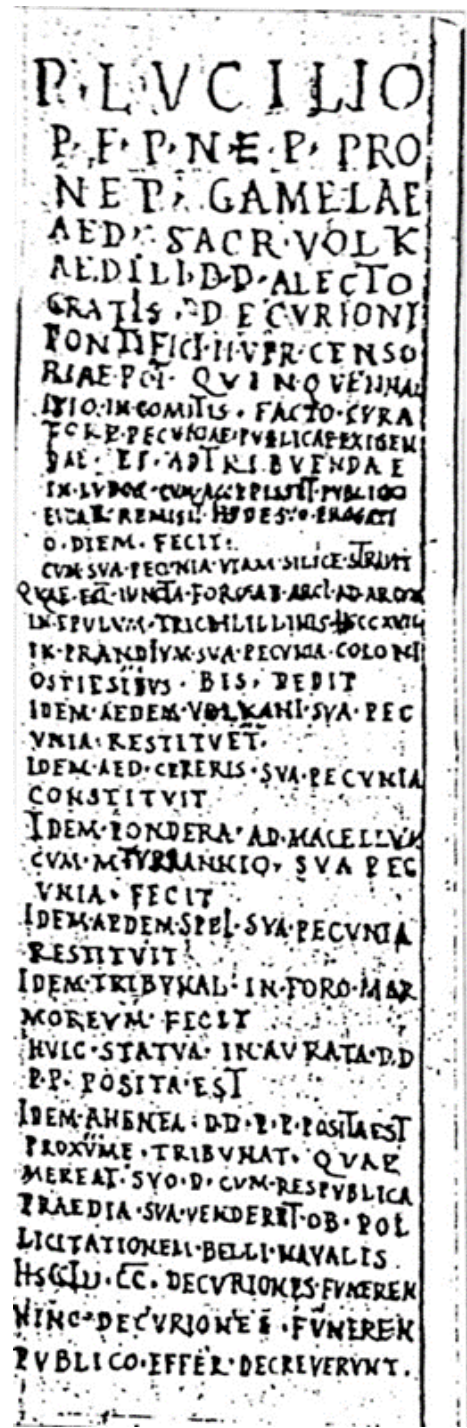 P·LVCILIO
P·F·P·N·E·P·PRO
NEP· GAMELAE
AED· SACR·VOLK
AEDILI·D·D·ALECTO
GRATIS· DECVRIONI
PONTIFICI·II·VPR·CENSO
RIAE·POT· QVINQVENNAL
IN·COMITIS· FACTO·CVRA
PECVNIAE·PVBLICAE·EXIGEN
DAE· ET· ADTRIBVENDAE
IN·LVDOS· PVBLICO
REMISIT·
O·DIEM·FECIT·
CVM·SVA·PECVNIA·VIAM·SILICE·STRAVIT
QVAE·EST·IVNCTA·FORO·AB·ARCV·AD·ARCVM
IN·EPVLVM·TRICHILINIIS·
IN·PRANDIVM·SVA·PECVNIA·COLONI
OSTIESIBVS· BIS· DEDIT
IDEM·AEDEM·VOLKANI·SVA·PEC
VNIA·RESTITVET·
IDEM·AED·CERERIS·SVA·PECVNIA
CONSTITVIT
IDEM·PONDERA·AD·MACELLVM
CVM·M·TVRRANNIO· SVA PEC
VNIA· FECIT
IDEM·AEDEM·SPEI·SVA·PECVNIA
RESTITVIT
IDEM·TRIBVNAL·IN·FORO·MAR
MOREVM·FECIT
HVIC·STATVA·INAVRATA·D·D
P·P· POSITA·EST
IDEM·AHENEA·D·D·P·P·POSITA EST
PROXVME·TRIBVNAT· QVAE
MEREAT·SVO·D·CVM·RESPVBLICA
PRAEDIA·SVA·VENDERET·OB·POL
LICITATIONEM·BELLI·NAVALIS
CC· DECVRIONES·FVNEREM
HINC·DECVRIONES·FVNEREM
PVBLICO·EFFER·DECREVERVNT·